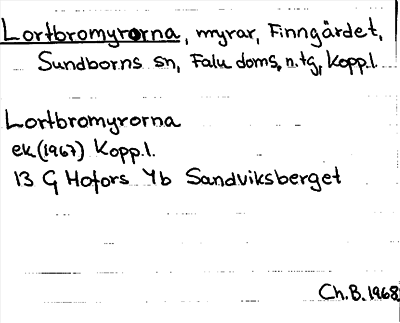 Lortbromyrorna, myrar, Finngärdet,
Sundborns sn, Falu doms. n. tg, Kopp.l.
Lortbromyrorna
ek (1967) Kopp.l.
13 G Hofors Yb Sandviksberget
Ch.B. 1968